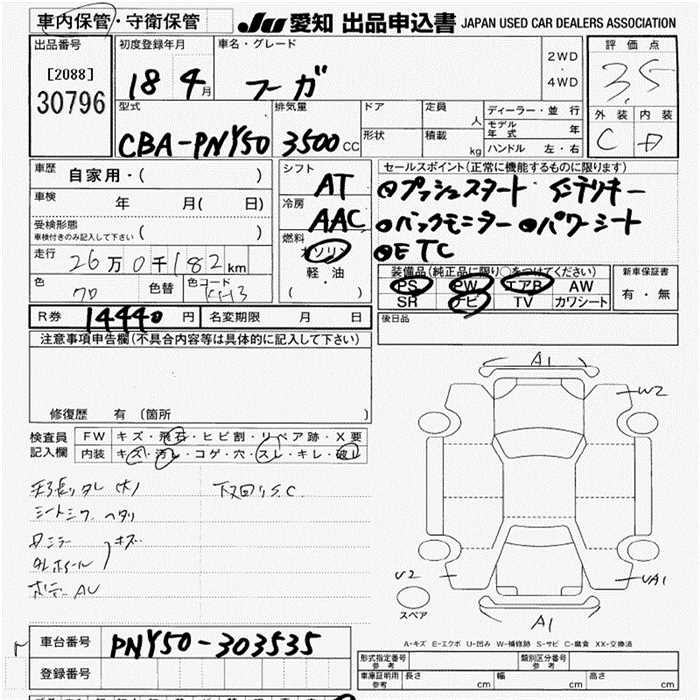 車内保管・守衛保管
JU 愛知 出品申込書 JAPAN USED CAR DEALERS ASSOCIATION
出品番号
[2088]
30796
初度登録年月
18 4月
車名・グレード
フーガ
2WD
・
4WD
評価点
3.5
外装 内装
C D
型式
CBA-PNY50
排気量
3500cc
ドア
形状
定員 人
積載 kg
ディーラー・並行
モデル年式 年
ハンドル 左・右
車歴 自家用・( )
車検 年 月( 日)
受検形態
車検付きのみ記入して下さい ( )
走行 26万0千182km
色 クロ 色替 色コード KH3
シフト
AT
冷房
AAC
燃料
ガソリン
軽・油
( )
セールスポイント(正常に機能するものに限ります)
●プッシュスタート インテリキー
●バックモニター ●パワーシート
●ETC
装備品(純正品に限り○をつけてください)
PS PW エアB AW
SR ナビ TV カワシート
新車保証書
有・無
後日品
R券 14440 円 名変期限 月 日
注意事項申告欄(不具合内容等は具体的に記入して下さい)
修復歴 有 (箇所 )
検査員 FW キズ・飛石・ヒビ割・リペア跡・X要
記入欄 内装 キズ・汚レ・コゲ・穴・スレ・キレ・破レ
シートシワ ヘタリ
キズ
下回りS.C
A1
W2
U2
UA1
A1
スペア
A-キズ E-エクボ U-凹み W-補修跡 S-サビ C-腐食 XX-交換済
車台番号 PNY50-303535
登録番号
形式指定番号 参考
類別区分番号 参考
車庫証明用 参考 長さ cm 幅 cm 高さ cm